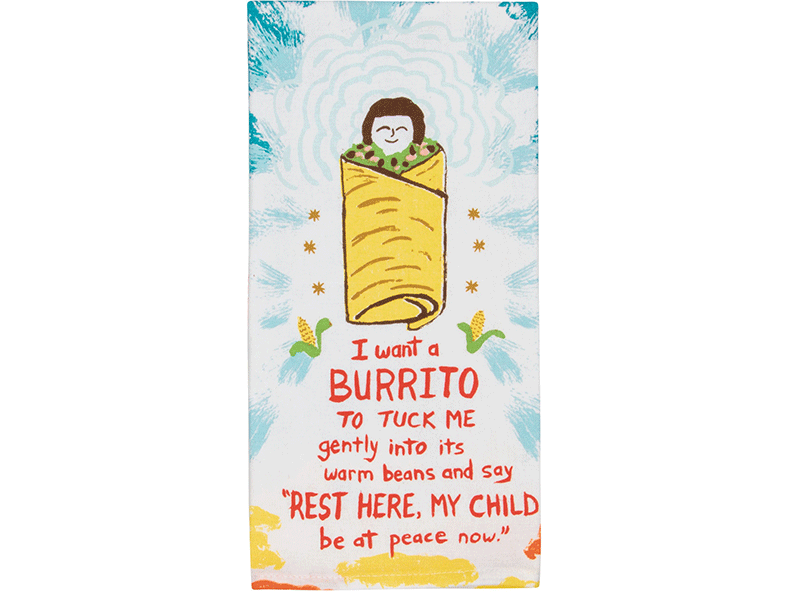 I want a
BURRITO
TO TUCK ME
gently into its
warm beans and say
"REST HERE, MY CHILD
be at peace now."